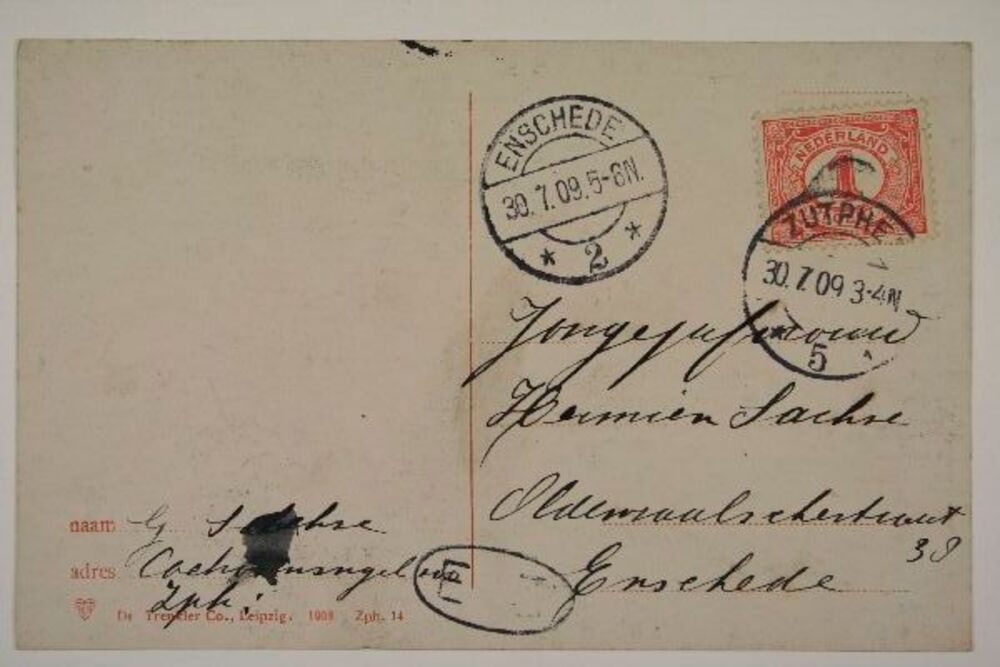 ENSCHEDE
30.7.09.5-6N.
* 2 *
NEDERLAND
1
ZUTPHE
30.7.09 3-4N
5
Jongejufvrouw
Hermien Sachse
Oldenzaalschestraat
38
Enschede
naam G Sachse
adres
Zph:
Dr Trenkler Co., Leipzig. 1908 Zph. 14